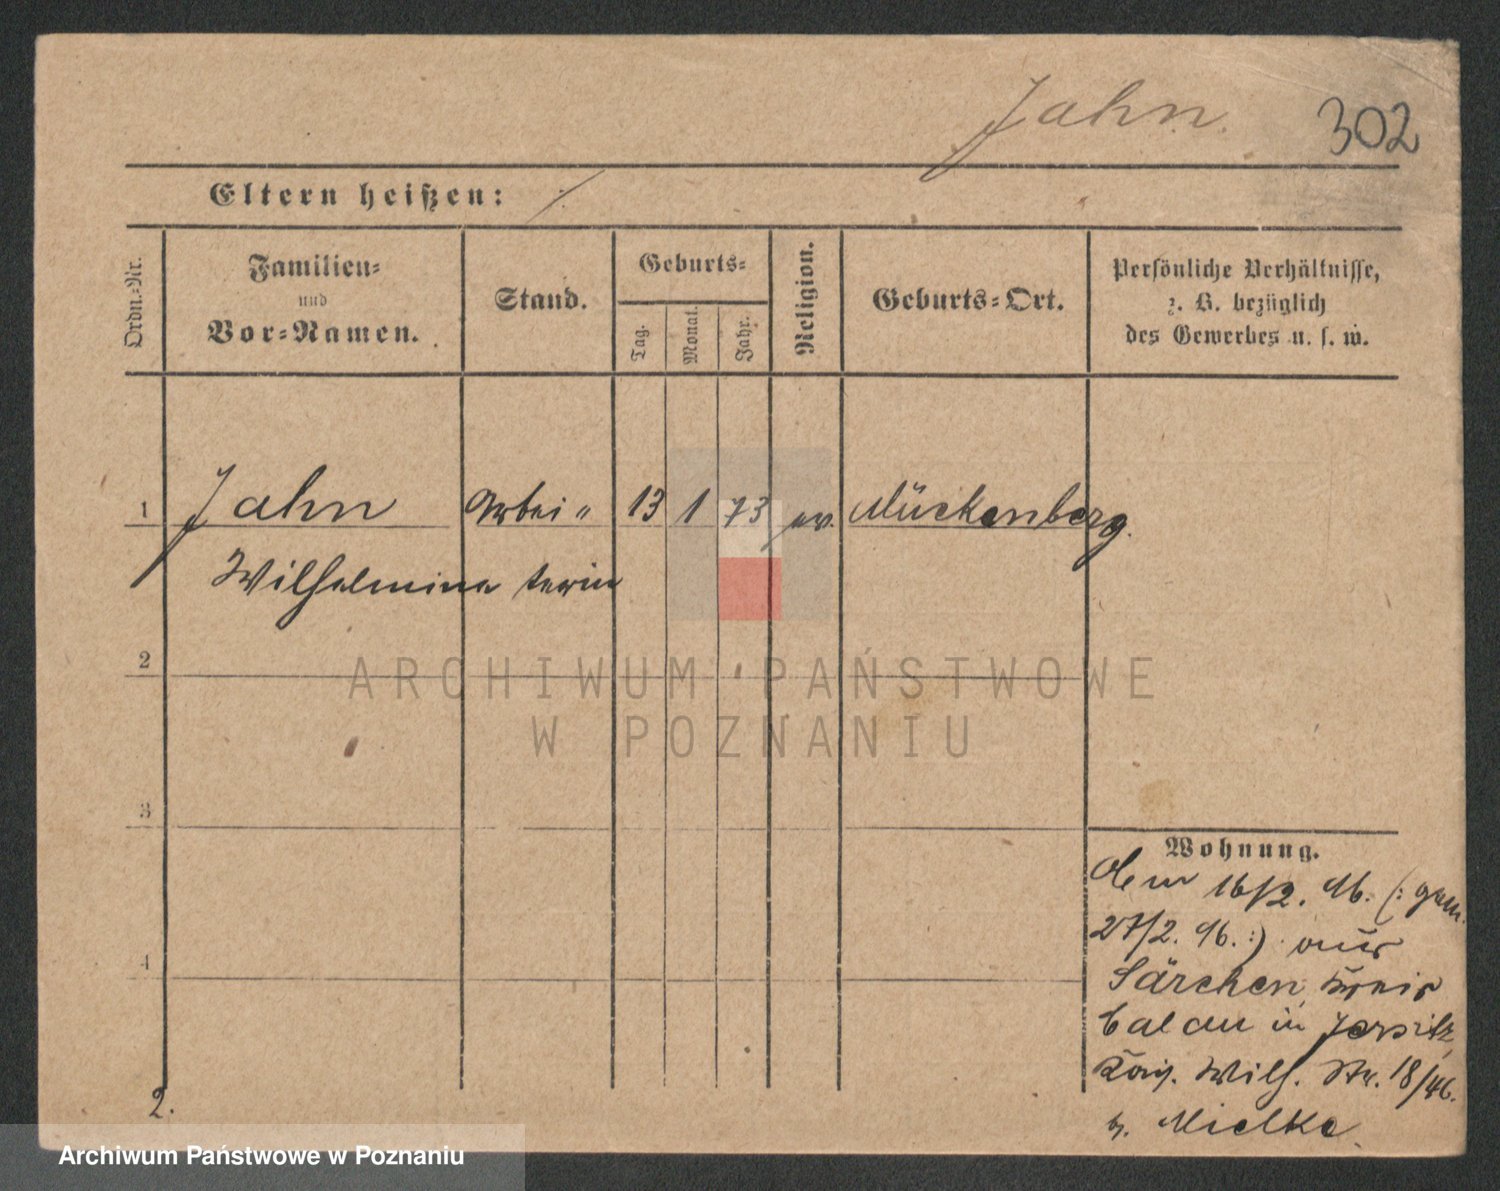 Jahn.
302
Eltern heißen: ·/·
Ordn.-Nr.
Familien-
und
Vor-Namen.
Stand.
Geburts-
Tag.
Monat.
Jahr.
Religion.
Geburts-Ort.
Persönliche Verhältnisse,
z. B. bezüglich
des Gewerbes u. s. w.
1 Jahn Arbei" 13 1 73 ev. Mückenberg.
Wilhelmine terin
2
ARCHIWUM PAŃSTWOWE
W POZNANIU
3
Wohnung.
Dem 16/2. 96. (: gem.
27/2. 96. :) aus
4
Särchen, Kreis
Calau in Jersitz,
König. Wilh. Str. 18/46.
b. Mielke.
2.
Archiwum Państwowe w Poznaniu